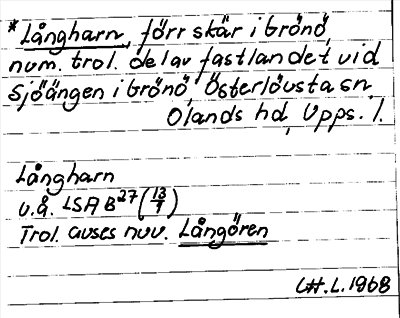 *Långharn, förr skär i Grönö,
num. trol. del av fastlandet vid
Sjöängen i Grönö, Österlövsta sn
Olands hd, Upps. l.
Långharn
u.å. LSA B27 (13/7)
Trol. avses nuv. Långören
C.H.L. 1968